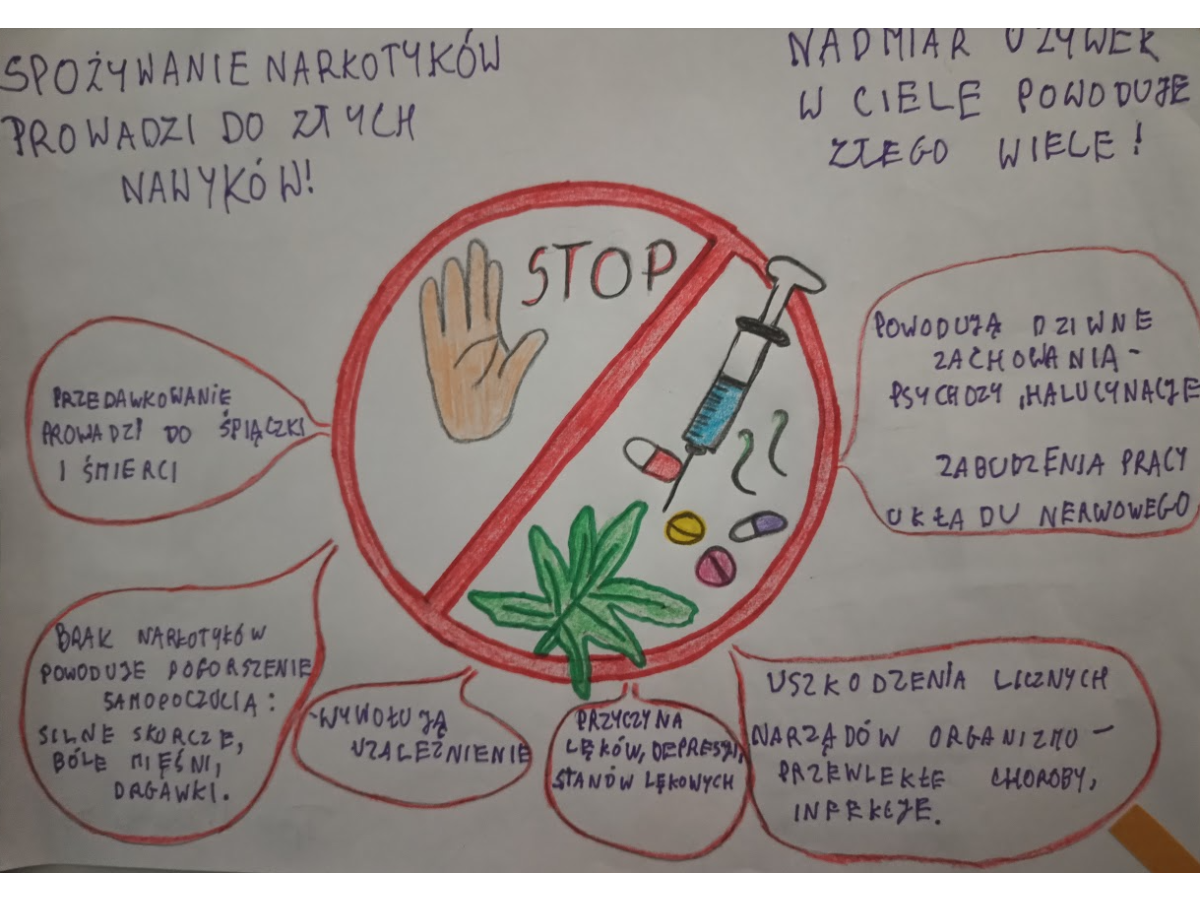 SPOŻYWANIE NARKOTYKÓW
PROWADZI DO ZŁYCH
NAWYKÓW!
NADMIAR UŻYWEK
W CIELE POWODUJE
ZŁEGO WIELE!
STOP
PRZEDAWKOWANIE
PROWADZI DO ŚPIĄCZKI
I ŚMIERCI
POWODUJĄ DZIWNE
ZACHOWANIA -
PSYCHOZY, HALUCYNACJE
ZABUDZENIA PRACY
UKŁADU NERWOWEGO
BRAK NARKOTYKÓW
POWODUJE POGORSZENIE
SAMOPOCZUCIĄ:
SILNE SKURCZE,
BÓLE MIĘŚNI,
DRGAWKI.
-WYWOŁUJĄ
UZALEŻNIENIE
PRZYCZYNA
LĘKÓW, DEPRESJI,
STANÓW LĘKOWYCH
USZKODZENIA LICZNYCH
NARZĄDÓW ORGANIZMU -
PRZEWLEKŁE CHOROBY,
INFEKCJE.